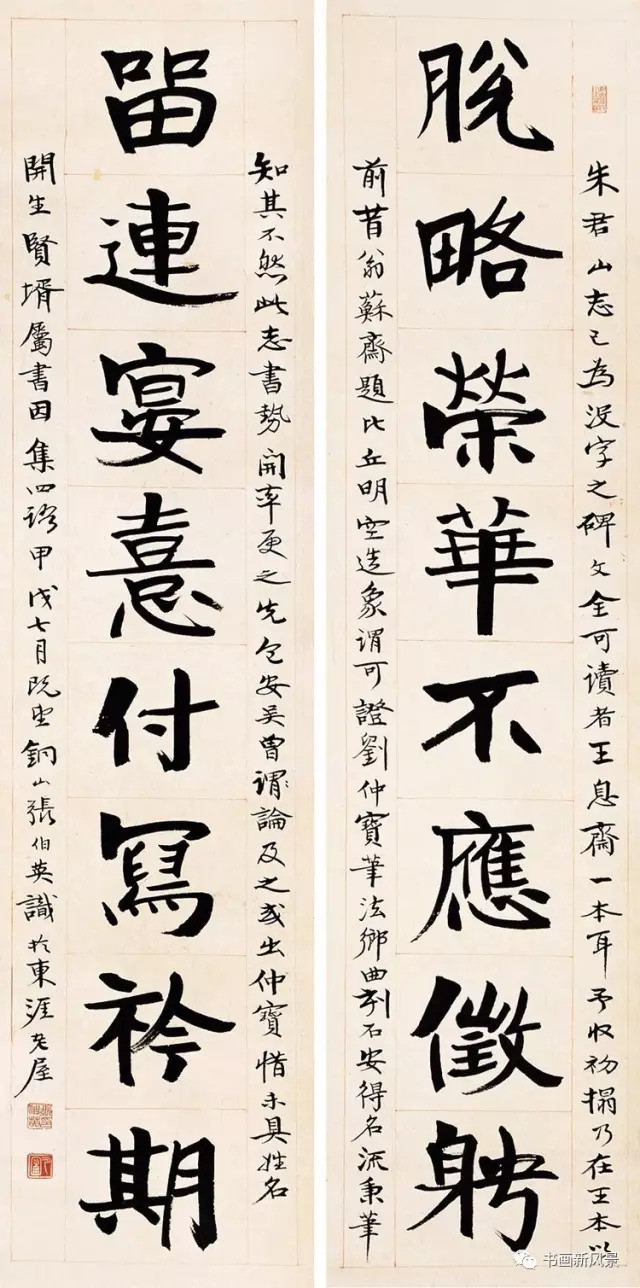 脫略榮華不應徵聘
留連宴憙付寫衿期
朱君山志已為没字之碑文全可讀者王息齋一本耳予收初搨乃在王本以
前昔翁蘇齋題比丘明空造象謂可證劉仲寶筆法鄉曲刻石安得名流秉筆
知其不然此志書勢開率更之先包安吴曾謂論及之或出仲寶惜未具姓名
開生賢壻屬書因集四語甲戌七月既望銅山張伯英識於東涯老屋
书画新风景